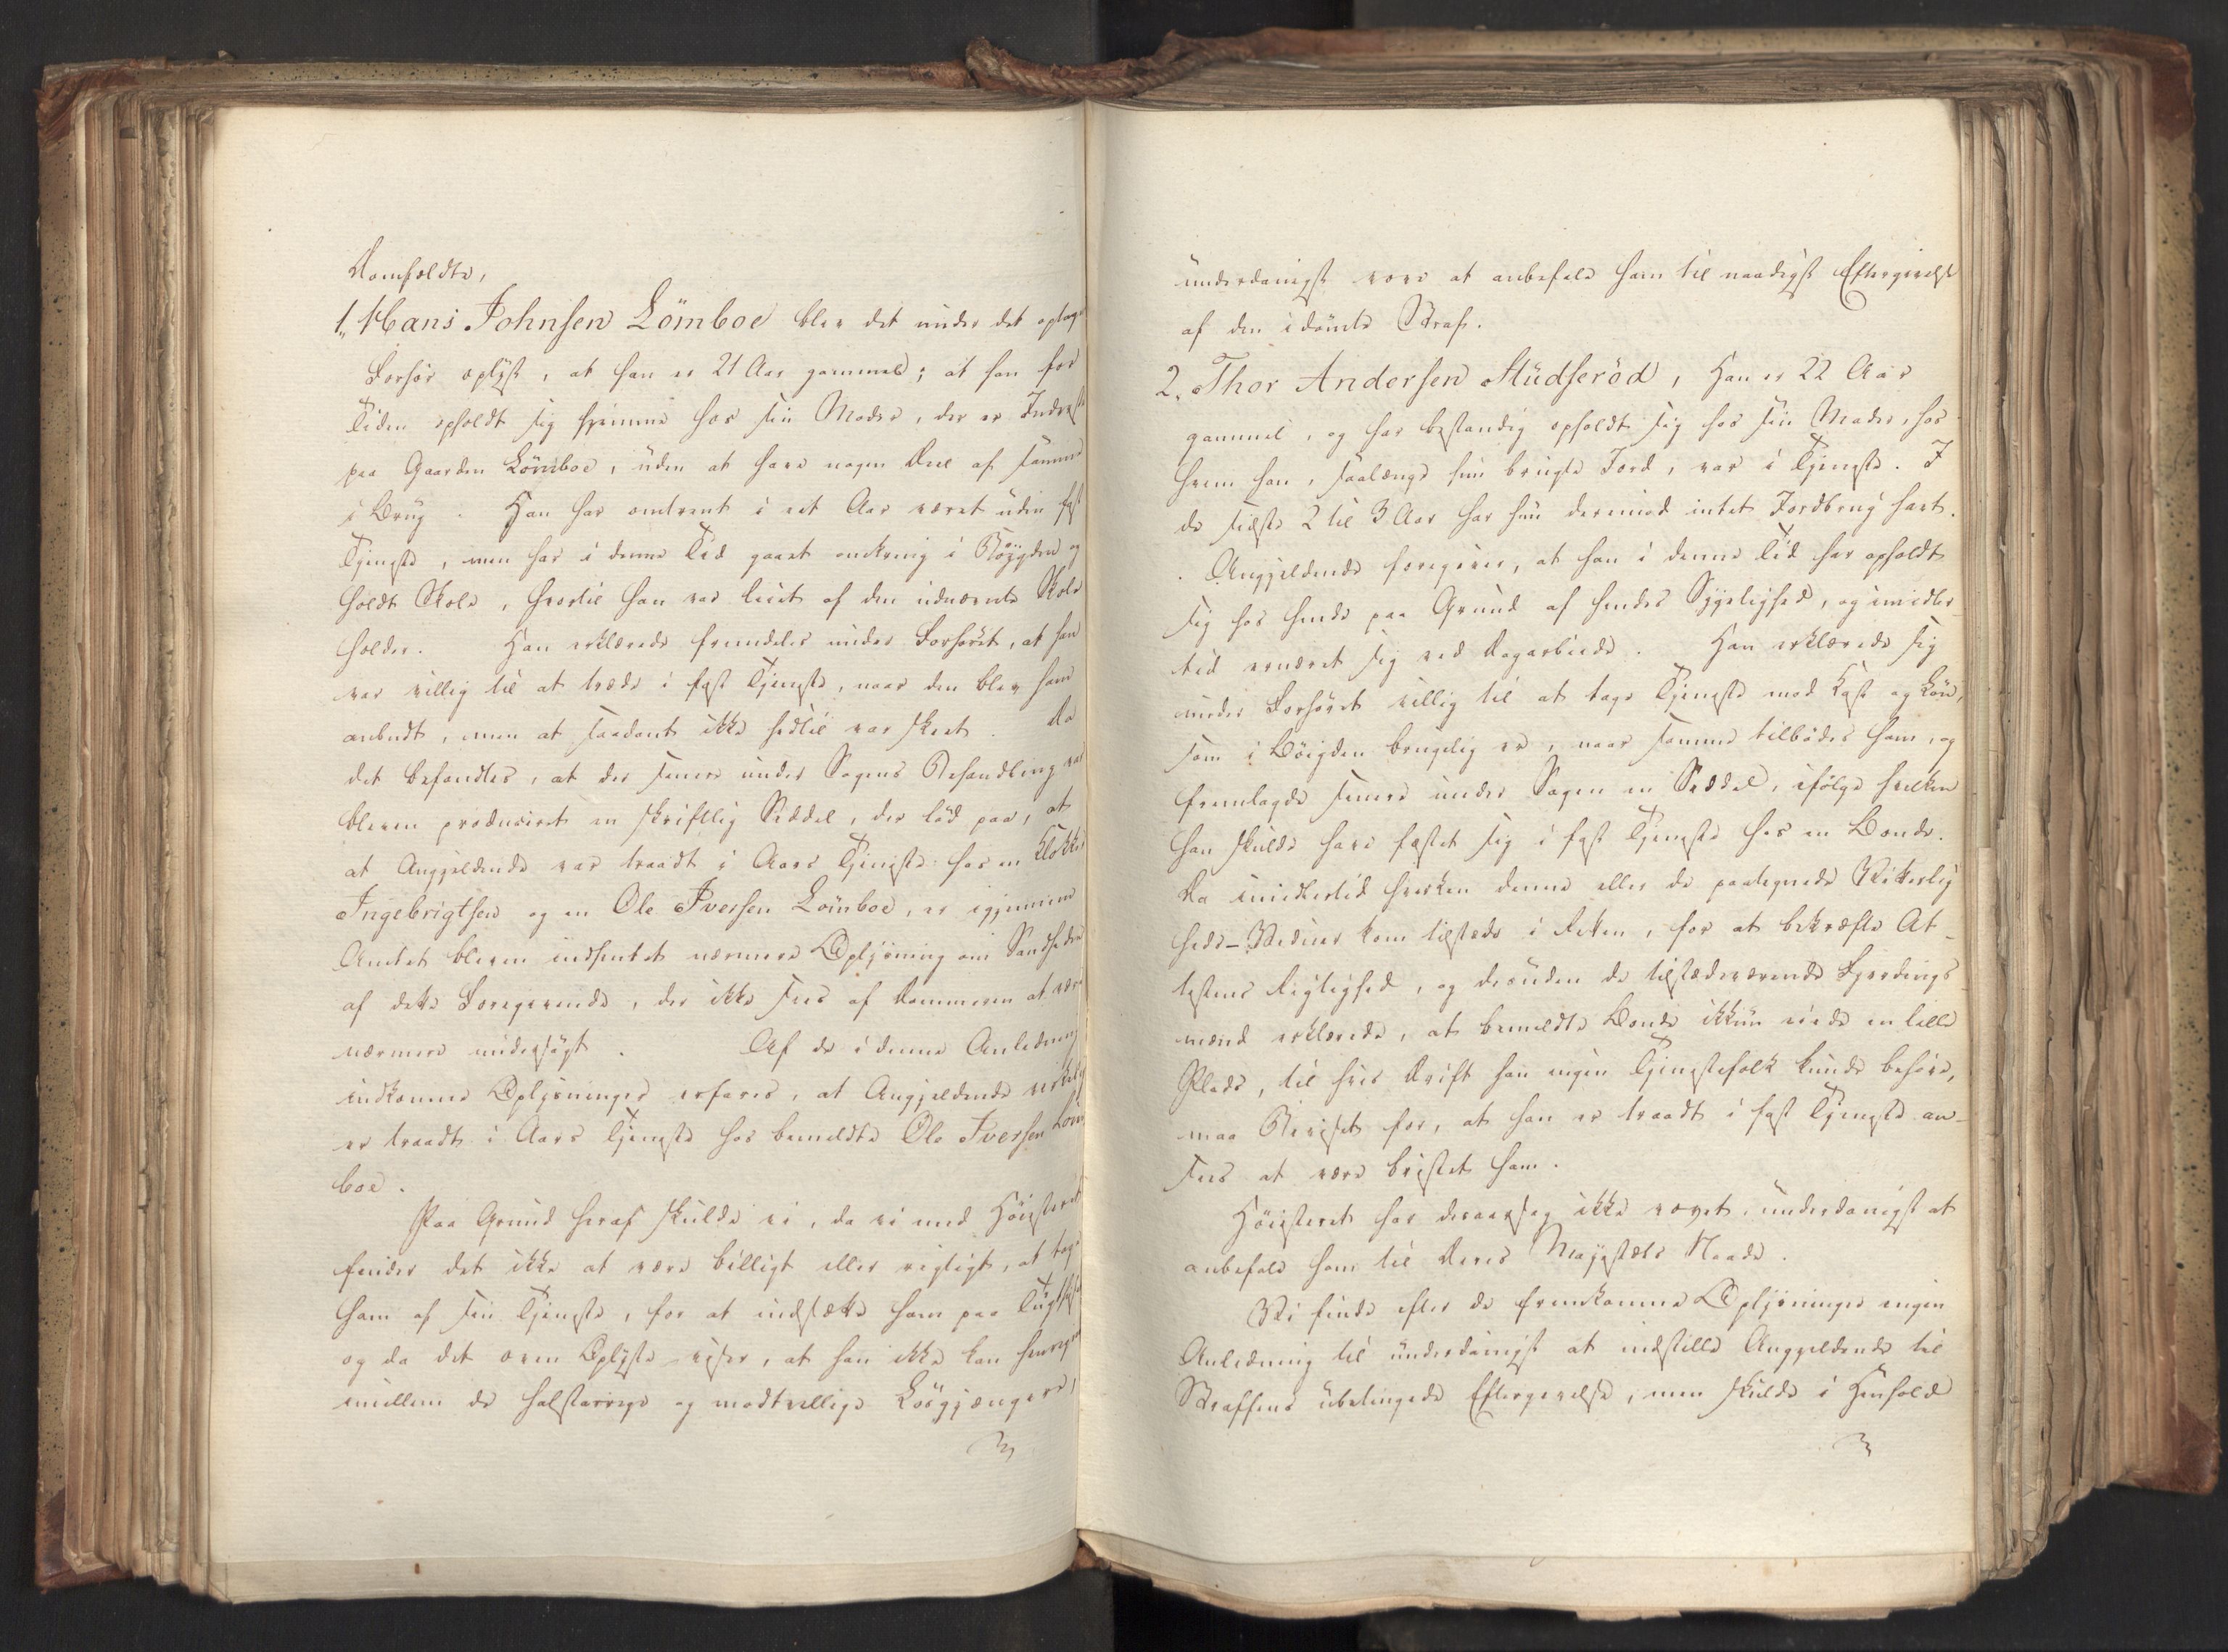 Domfældte,
1. Hans Johnsen Lömboe blev det under det optagne
Forhör oplyst, at han er 21 Aar gammel; at han for
Tiden opholdt sig hjemme hos sin Moder, der er Inderst
paa Gaarden Lömboe, uden at have nogen Deel af samme
i Brug. Han har omtrent i eet Aar været uden fast
Tjeneste, men har i denne Tid gaaet omkring i Böygden og
holdt Skole, hvortil han var leiet af den udnævnte Skole
holder. Han erklærede fremdeles under Forhöret, at han
var villig til at træde i fast Tjeneste, naar den blev ham
anbudt, men at saadant ikke hidtil var skeet. Da
det befandtes, at der senere under Sagens Behandling var
bleven produceret en skriftlig Seddel, der löd paa, at
at Angjeldende var traadt i Aars Tjeneste hos en Klokker
Ingebrigtsen og en Ole Iversen Lömboe, er igjennem
Amtet bleven indhentet nærmere Oplysning om Sandheden
af dette Foregivende, der ikke sees af Dommeren at være
nærmere undersögt. Af de i denne Anledning
indkomne Oplysninger erfares, at Angjeldende virkelig
er traadt i Aars Tjeneste hos bemeldte Ole Iversen Löm
boe.
Paa Grund heraf skulde vi, da vi med Höiesteret
finder det ikke at være billigt eller rigtigt, at tage
ham af sin Tjeneste, for at indsætte ham paa Tugthuset
og da det oven Oplyste viser, at han ikke kan henregnes
imellem de halstarrige og modvillige Lösgjængere,
underdanigst vove at anbefale ham til naadigst Eftergivelse
af den idömte Straf.
2. Thor Andersen Studseröd, Han er 22 Aar
gammel, og har bestandig opholdt sig hos sin Moder, hos
hvem han, saalænge hun brugte Jord, var i Tjeneste. I
de sidste 2 til 3 Aar har hun derimod intet Jordbrug havt.
Angjeldende foregiver, at han i denne Tid har opholdt
sig hos hende paa Grund af hendes Sygelighed, og imidler
tid ernæret sig ved Dagarbeide. Han erklærede sig
under Forhöret villig til at tage Tjeneste mod Kost og Lön,
som i Böigden brugelig er, naar samme tilbödes ham, og
fremlagde senere under Sagen en Seddel, ifölge hvilken
han skulde have fæstet sig i fast Tjeneste hos en Bonde.
Da imidlertid hverken denne eller de paategnede Vitterlig
heds-Vidner kom tilstede i Retten, for at bekræfte At-
testens Rigtighed, og desuden de tilstedeværende Fjerdings-
mænd erklærede, at bemeldte Bonde ikkun eiede en lille
Plads, til hvis Drift han ingen Tjenestefolk kunde behöve,
maa Beviset for, at han er traadt i fast Tjeneste an-
sees at være bristet ham.
Höiesteret har desaarsag ikke vovet, underdanigst at
anbefale ham til Deres Majestæts Naade.
Vi finde efter de fremkomne Oplysninger ingen
Anledning til underdanigst at indstille Angjeldende til
Straffens ubetingede Eftergivelse, men skulde i Henhold